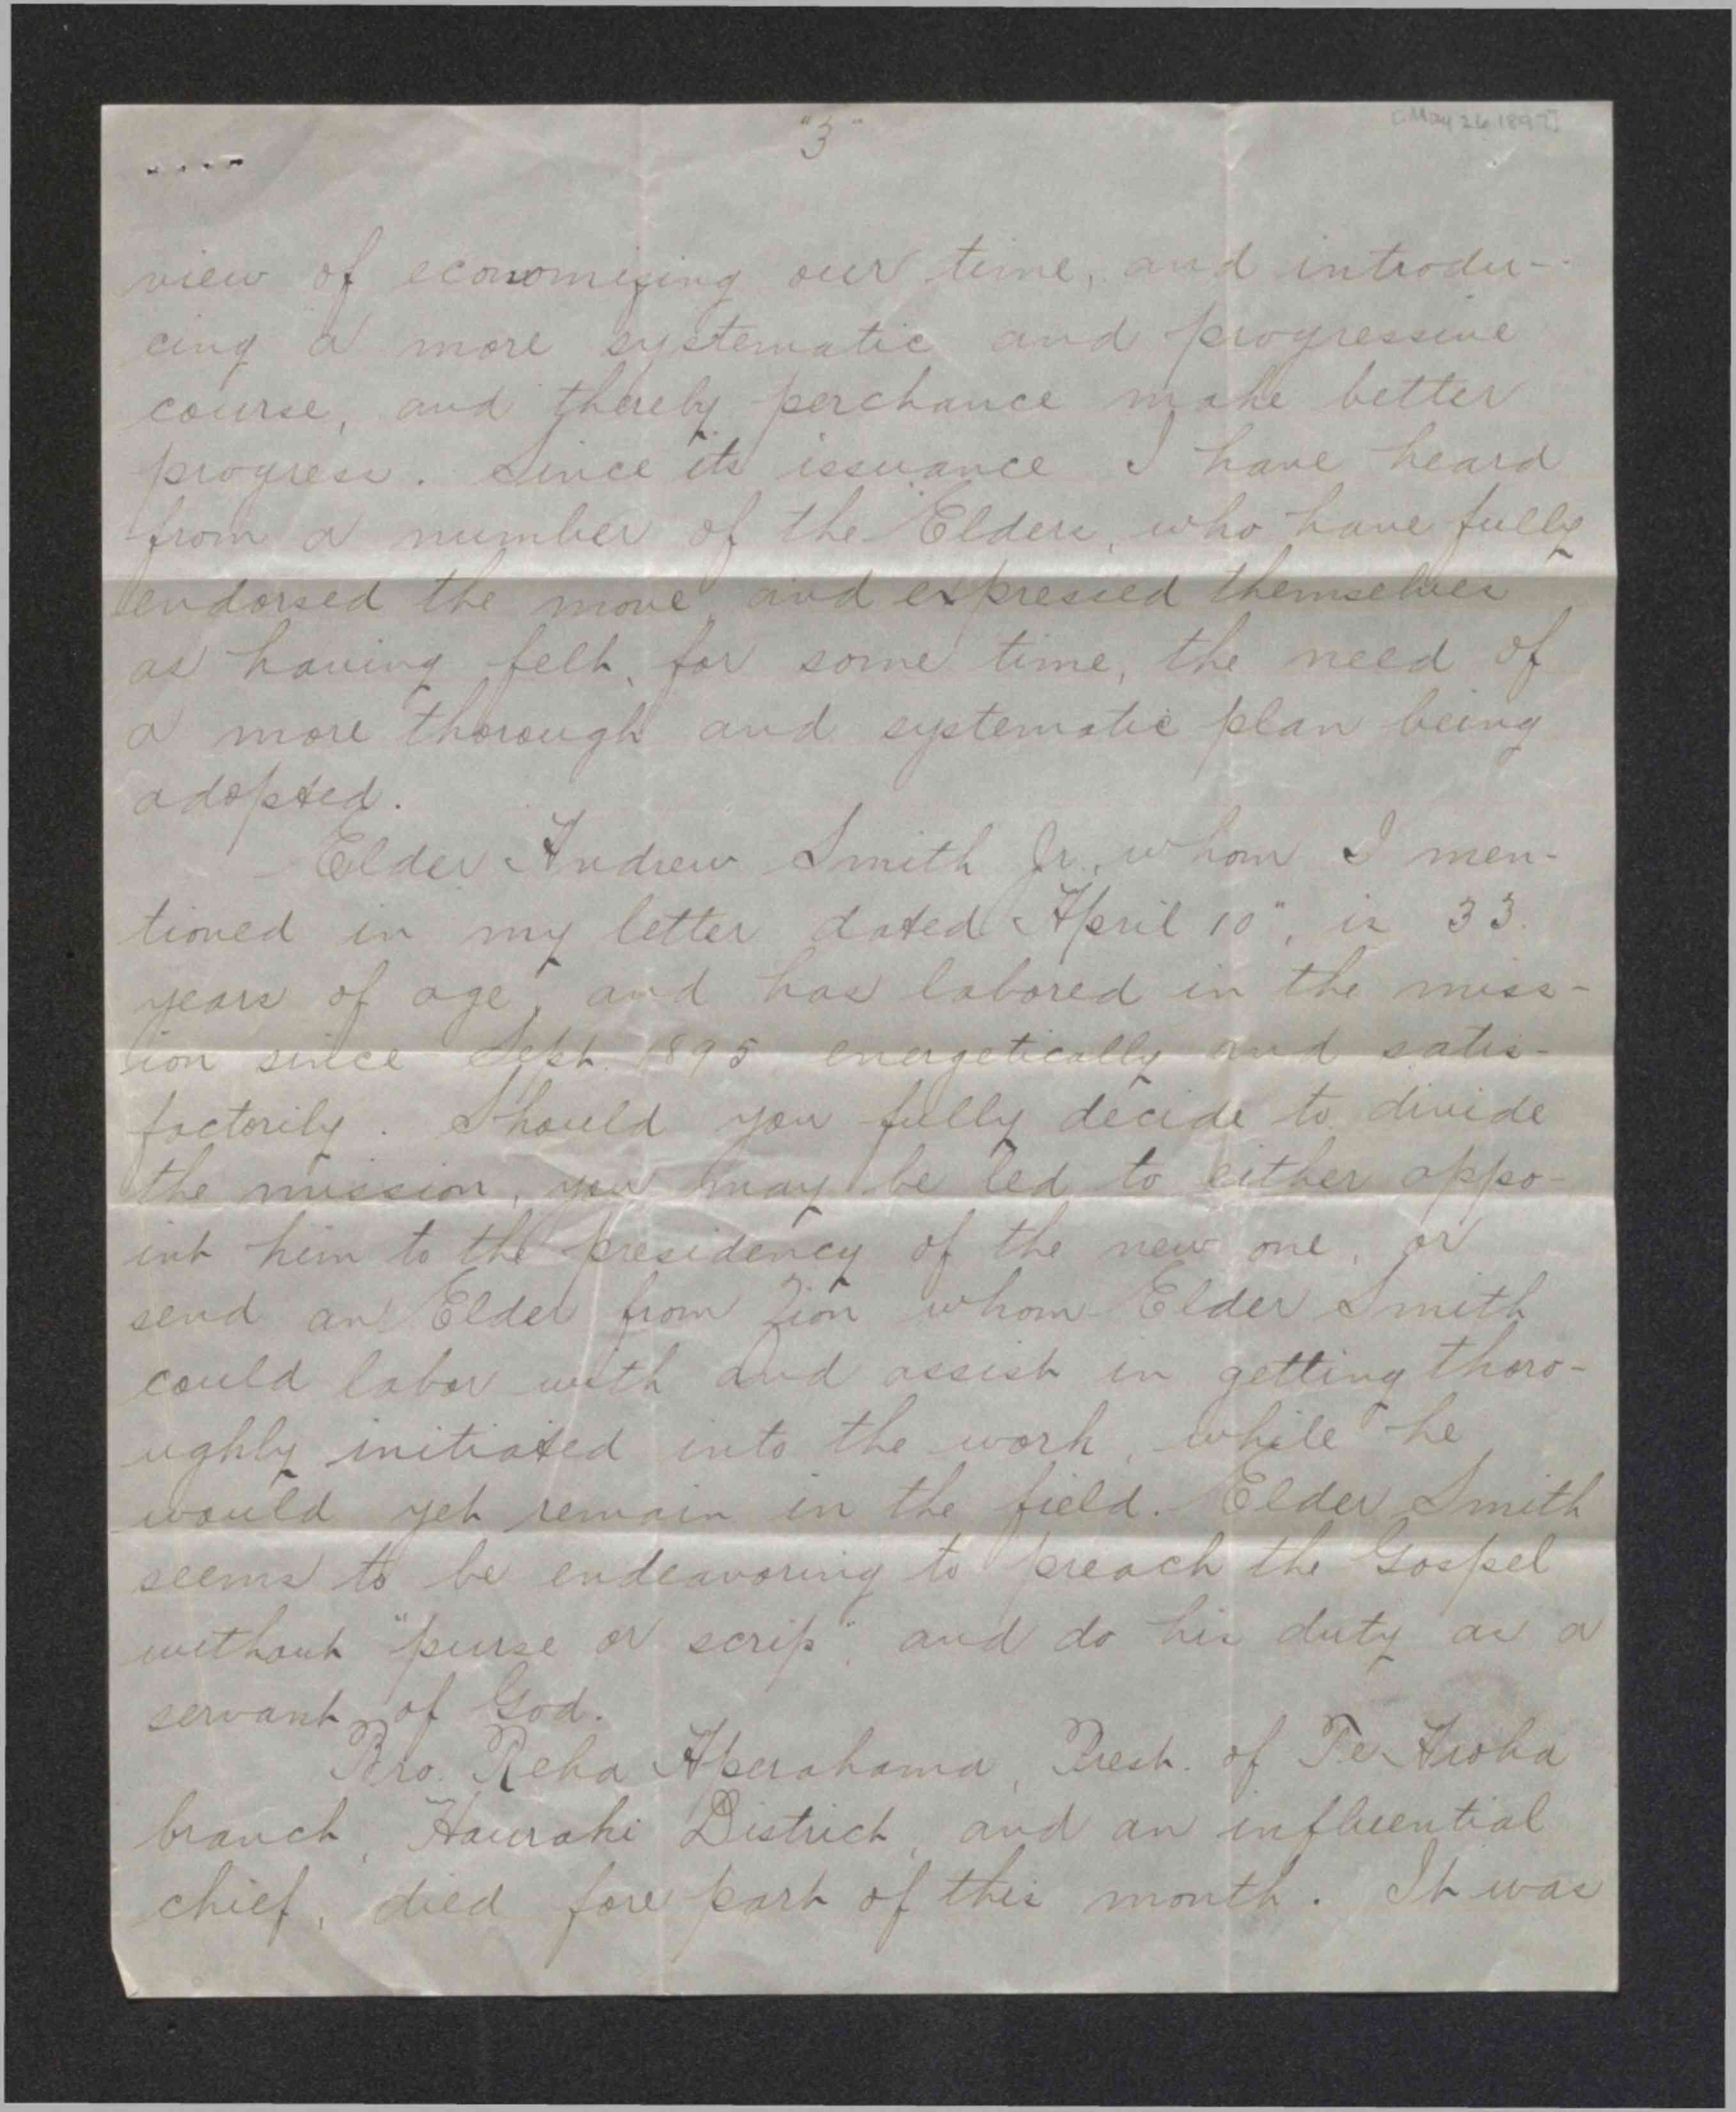 "3"
[May 26 1897]
view of economizing our time, and introdu-
cing a more systematic and progressive
course, and thereby perchance make better
progress. Since its issuance I have heard
from a number of the Elders, who have fully
endorsed the move, and expressed themselves
as having felt, for some time, the need of
a more thorough and systematic plan being
adopted.
Elder Andrew Smith Jr., whom I men-
tioned in my letter dated April 10", is 33
years of age, and has labored in the miss-
ion since Sept. 1895 energetically and satis-
factorily. Should you fully decide to divide
the mission, you may be led to either appo-
int him to the presidency of the new one, or
send an Elder from Zion whom Elder Smith
could labor with and assist in getting thoro-
ughly initiated into the work, while he
would yet remain in the field. Elder Smith
seems to be endeavoring to preach the Gospel
without "purse or scrip", and do his duty as a
servant of God.
Bro. Reha Aperahama, Prest. of Te Aroha
branch, Hauraki District, and an influential
chief, died fore part of this month. It was